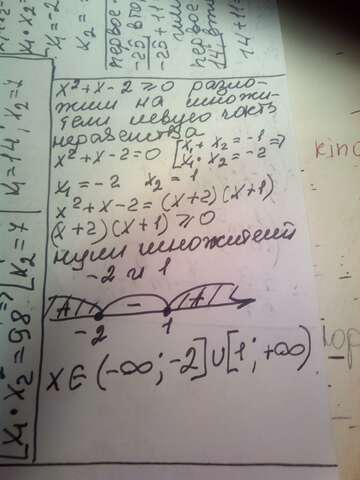 x²+x-2≥0 разло-
жим на множи-
тели левую часть
неравенства
x²+x-2=0 [x₁+x₂=-1 =>
x₁·x₂=-2
x₁=-2 x₂=1
x²+x-2=(x+2)(x+1)
(x+2)(x+1)≥0
нули множителей
-2 и 1
+ - +
-2 1
x∈(-∞;-2]∪[1;+∞)
x₁·x₂=98 [x₂=7 | x₁=14; x₂=7
первое
-25
-25+11
первое
14
14+11=
x₁·x₂
x₁=-2
x₂=
kino